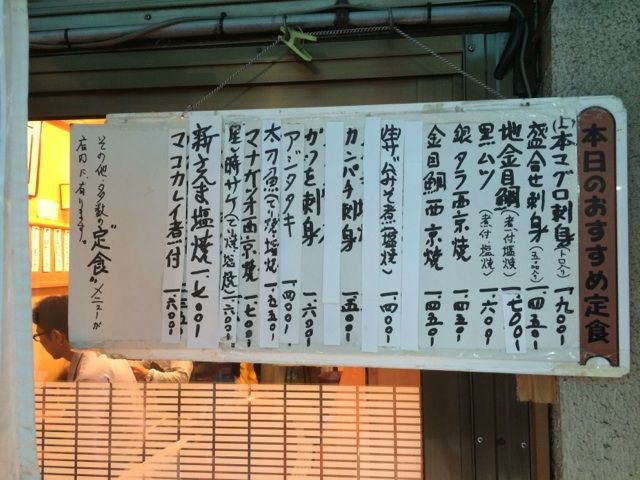 本日のおすすめ定食
(上)本マグロ刺身(トロ入り) 一.九〇〇
盛合せ刺身(五品入り) 一.四五〇
地金目鯛(煮付.塩焼) 一.七〇〇
黒ムツ(煮付.塩焼) 一.六〇〇
銀タラ西京焼 一.四五〇
金目鯛西京焼 一.四五〇
生サバみそ煮(塩焼) 一.四〇〇
カンパチ刺身 一.五〇〇
カツオ刺身 一.六〇〇
アジタタキ 一.四〇〇
太刀魚 塩焼 一.五五〇
マナガツオ西京焼 一.七〇〇
時サケ 塩焼 一.六〇〇
新さんま塩焼 一.七〇〇
マコカレイ煮付 一.六〇〇
その他、多数の"定食"メニューが
店内に、有ります。